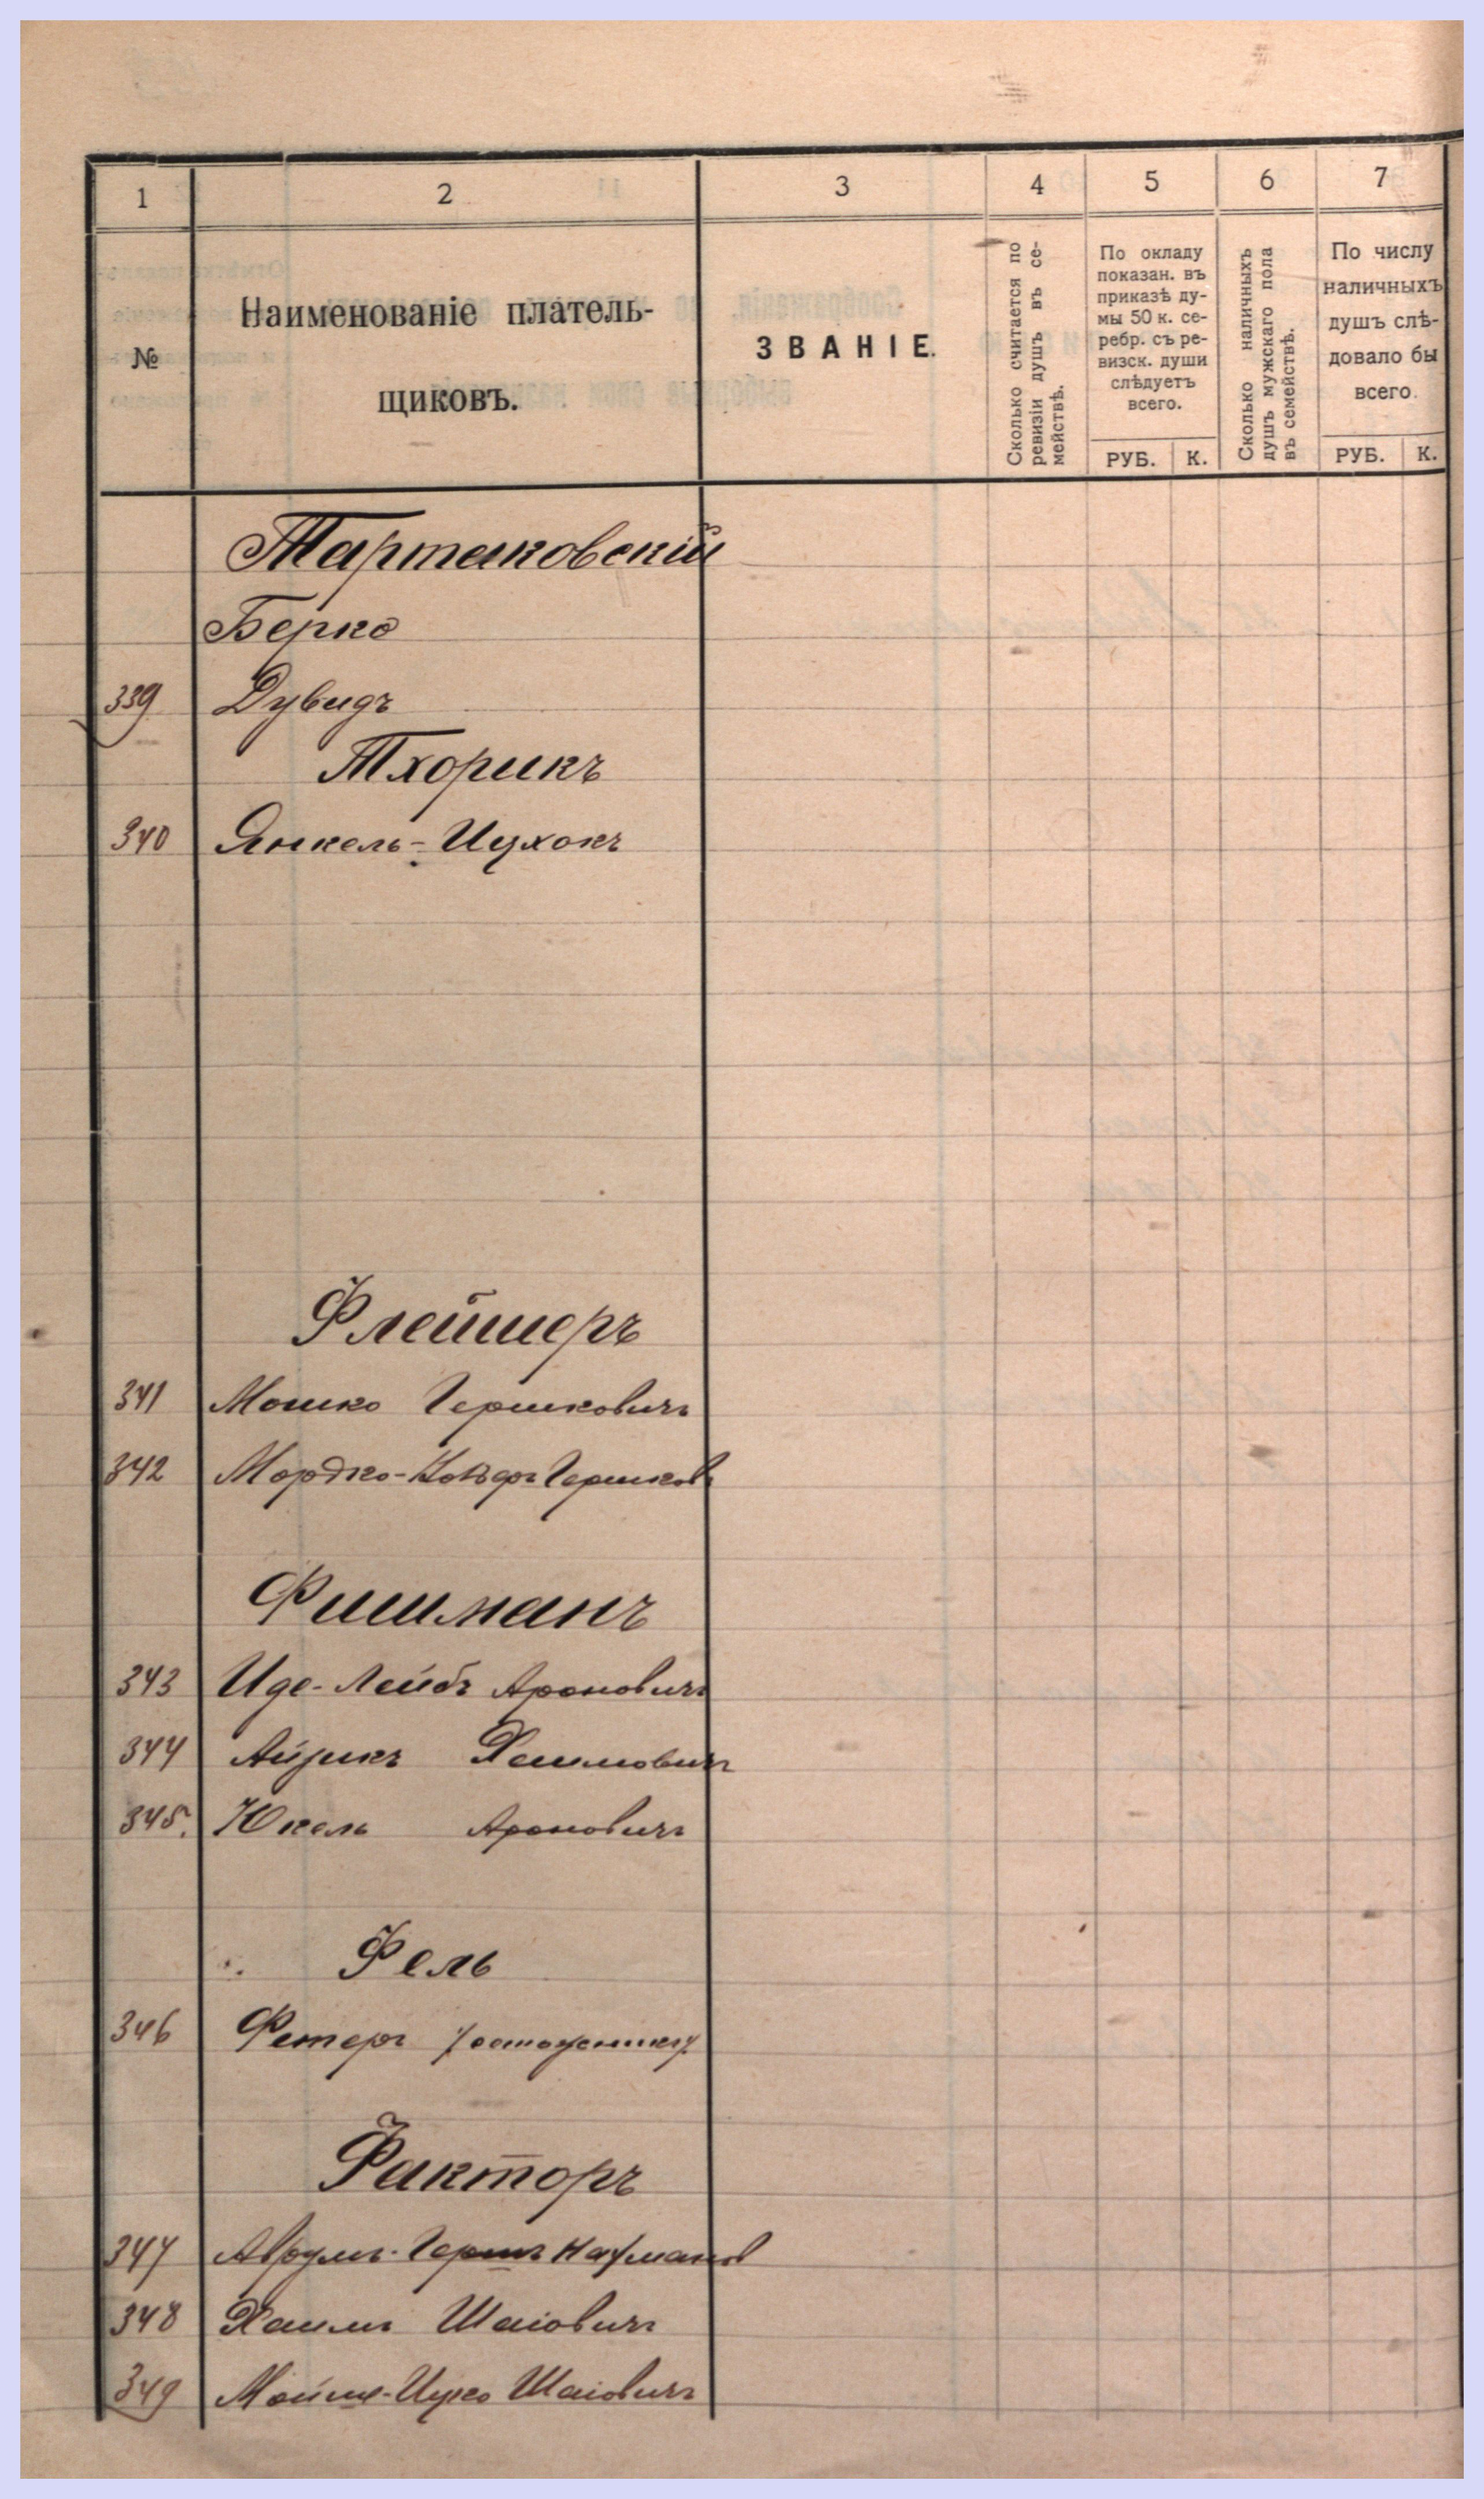 1 2 3 4 5 6 7
№
Наименованіе платель-
щиковъ.
ЗВАНІЕ.
Сколько считается по
ревизіи душъ въ се-
мействѣ.
По окладу
показан. въ
приказѣ ду-
мы 50 к. се-
ребр. съ ре-
визск. души
слѣдуетъ
всего.
РУБ. К.
Сколько наличныхъ
душъ мужскаго пола
въ семействѣ.
По числу
наличныхъ
душъ слѣ-
довало бы
всего.
РУБ. К.
Тартаковскій
Берко
339 Дувидъ
Тхорикъ
340 Янкель-Ицхокъ
Флейшеръ
341 Мошко Гершковичъ
342 Мордко- Гершков
Фишманъ
343 Иде-Лейбъ Ароновичъ
344 Айзикъ Хаимовичъ
345. Юкель Ароновичъ
Фель
346 Фетеръ
Факторъ
347 Аврумъ-Гершъ Нахманов
348 Хаимъ Шаіовичъ
349 Мойше-Ицко Шаіовичъ